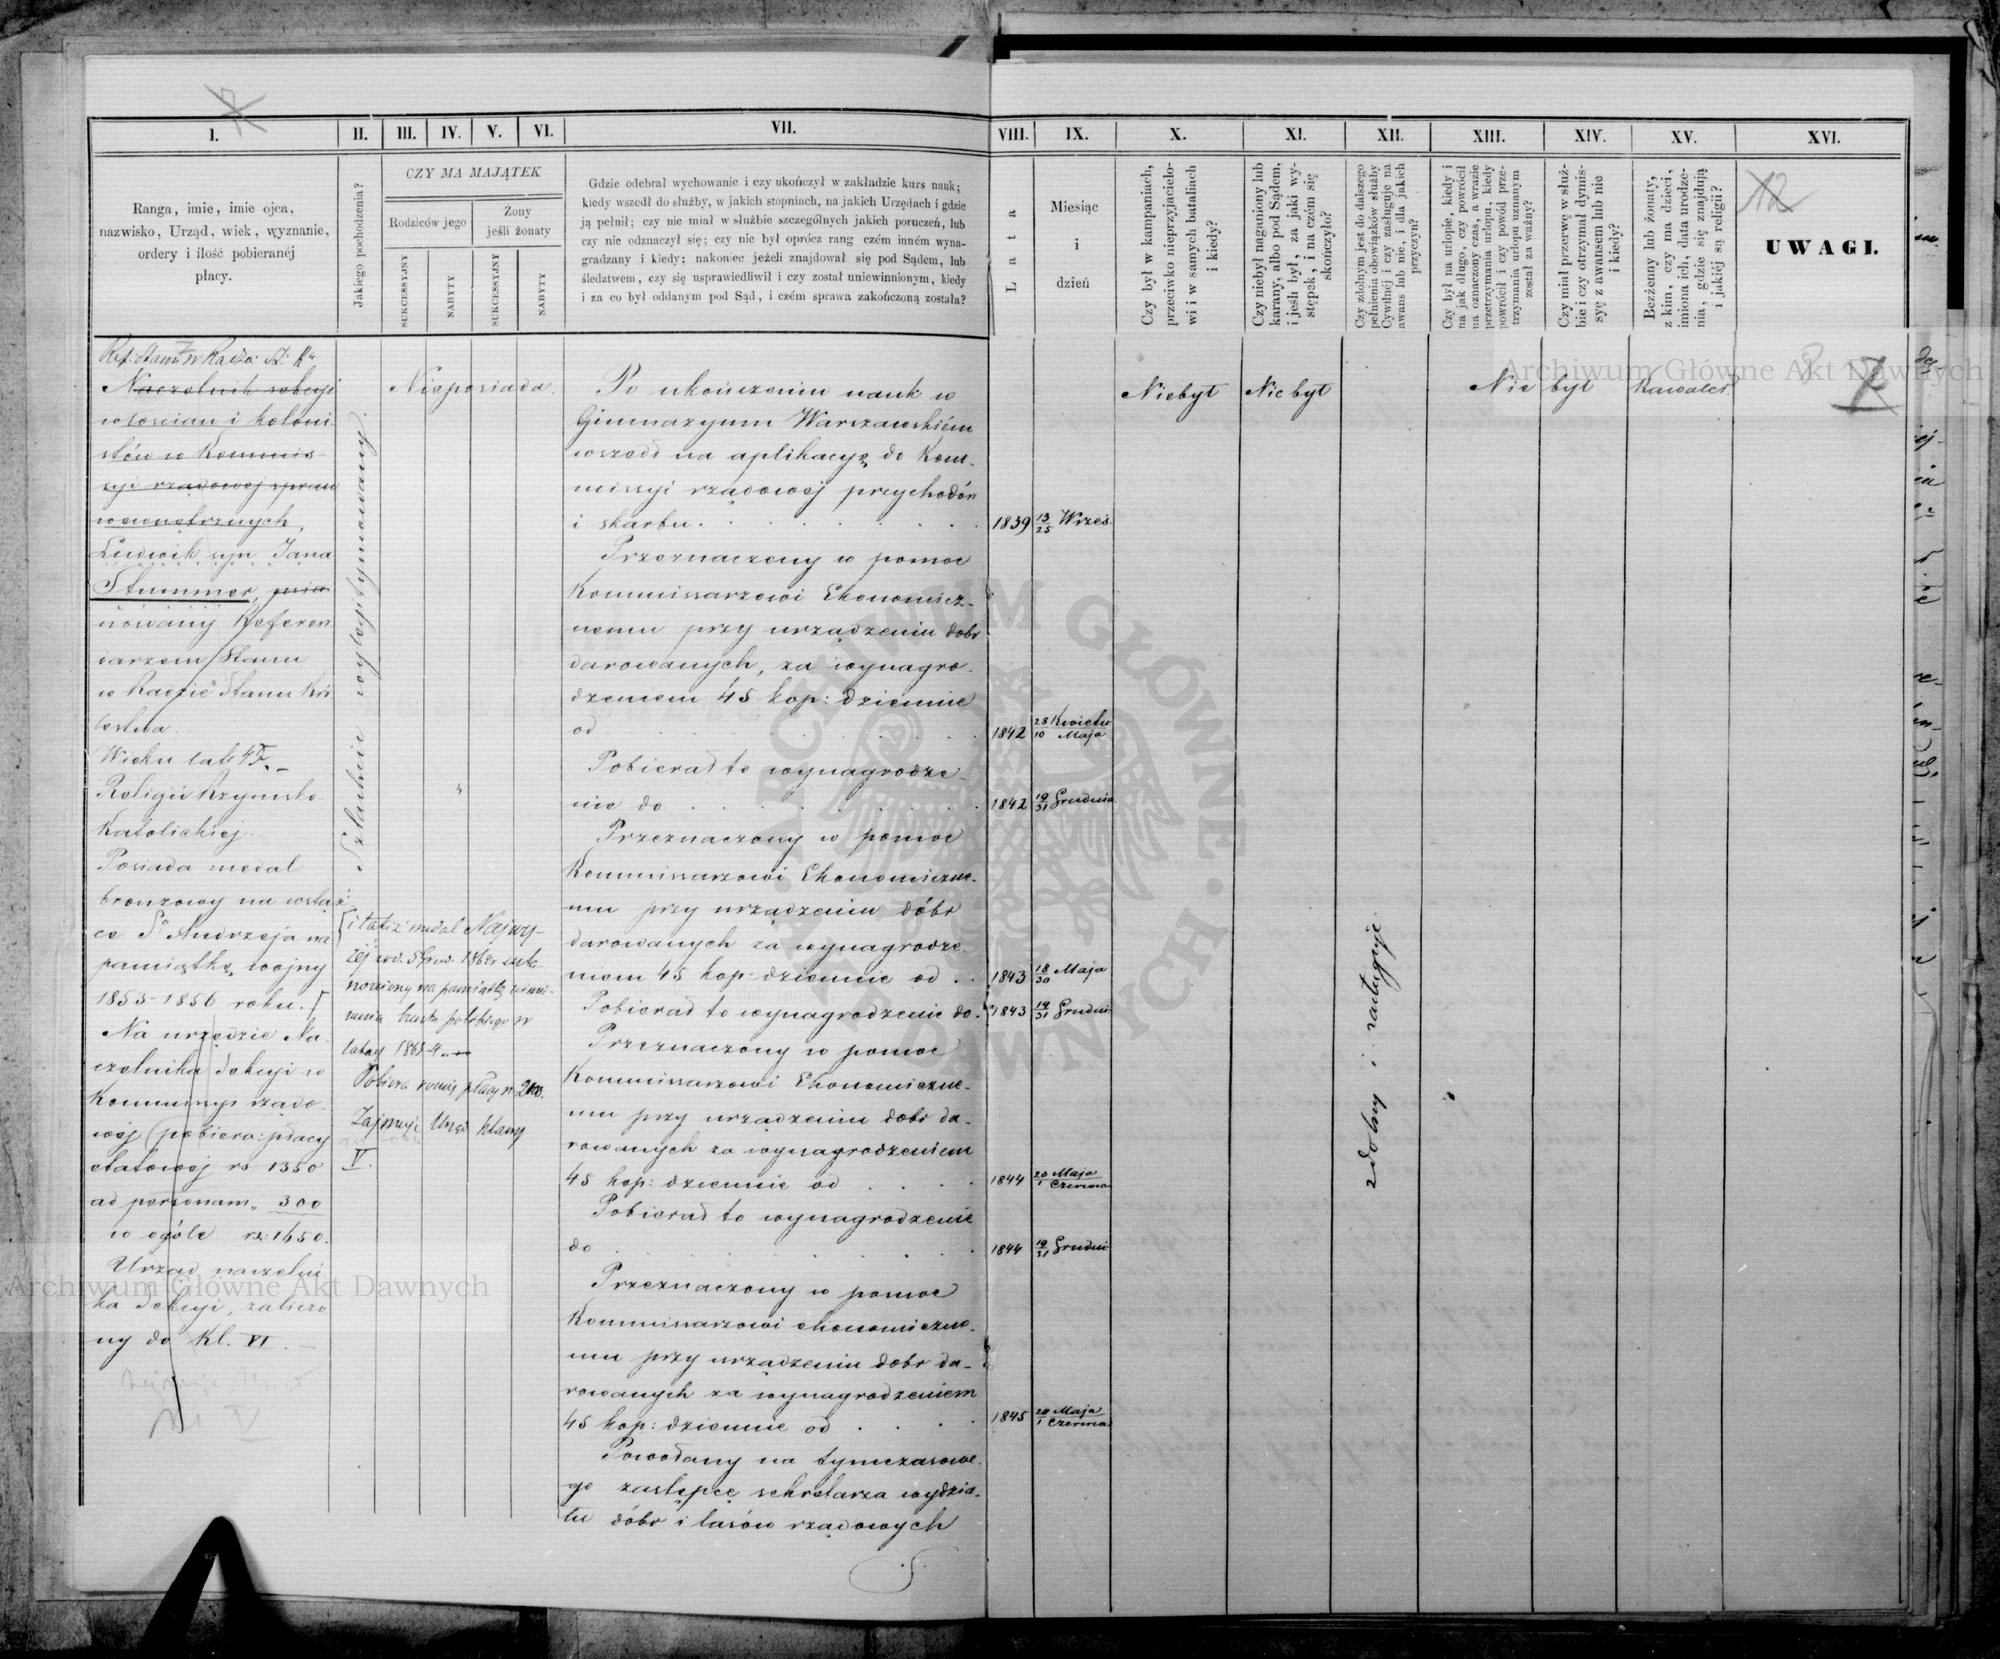 I.
II.
III.
IV.
V.
VI.
VII.
VIII.
IX.
X.
XI.
XII.
XIII.
XIV.
XV.
XVI.
Ranga, imie, imie ojca,
nazwisko, Urząd, wiek, wyznanie,
ordery i ilość pobieranéj
płacy.
Jakiego pochodzenia?
CZY MA MAJĄTEK
Rodziców jego
Żony
jeśli żonaty
SUKCESSYJNY
NABYTY
SUKCESSYJNY
NABYTY
Gdzie odebrał wychowanie i czy ukończył w zakładzie kurs nauk;
kiedy wszedł do służby, w jakich stopniach, na jakich Urzędach i gdzie
ją pełnił; czy nie miał w służbie szczególnych jakich poruczeń, lub
czy nie odznaczył się; czy nie był oprócz rang czém inném wyna-
gradzany i kiedy; nakoniec jeżeli znajdował się pod Sądem, lub
śledztwem, czy się usprawiedliwił i czy został uniewinnionym, kiedy
i za co był oddanym pod Sąd, i czém sprawa zakończoną została?
Lata
Miesiąc
i
dzień
Czy był w kampaniach,
przeciwko nieprzyjacielo-
wi i w samych bataliach
i kiedy?
Czy niebył naganiony lub
karany, albo pod Sądem,
i jeśli był, za jaki wy-
stępek, i na czém się
skończyło?
Czy zdolnym jest do dalszego
pełnienia obowiązków służby
Cywilnéj i czy zasługuje na
awans lub nie, i dla jakich
przyczyn?
Czy był na urlopie, kiedy i
na jak długo, czy powrócił
na oznaczony czas, a w razie
przetrzymania urlopu, kiedy
powrócił i czy powód prze-
trzymania urlopu uznanym
został za ważny?
Czy miał przerwę w służ-
bie i czy otrzymał dymis-
syę z awansem lub nie
i kiedy?
Bezżenny lub żonaty,
z kim, czy ma dzieci,
imiona ich, data urodze-
nia, gdzie się znajdują
i jakiéj są religii?
12
UWAGI.
Ref: Stanu w Radzie St: Kr
Naczelnik sekcyi
włościan i koloni-
stów w Kommis-
syi rządowej spraw
wewnętrznych,
Ludwik syn Jana
Stummer, mia-
nowany Referen
darzem Stanu
w Radzie Stanu Kró
lestwa.
Wieku lat 45.
Religii Rzymsko-
Katolickiej
Posiada medal
bronzowy na wstąż-
ce Sgo Andrzeja na
pamiątkę wojny
1853-1856 roku.
Na urzędzie Na-
czelnika Sekcyi w
Kommissyi rządo-
wéj pobiera: płacy
etatowej rs. 1350
ad personam „ 300
w ogóle rs: 1650.
Urząd naczelni
ka Sekcyi, zaliczo
ny do Kl. VI.
Szlachcic wylegitymowany.
i takiż medal Najwy-
żej
nowiony na pamiątkę uśmie-
rzenia buntu polskiego w
latach 1863-4.
Pobiera roczniej płacy rs 2100.
Zajmuje Urząd klassy
V.
Nieposiada
Po ukończeniu nauk w
Gimnazyum Warszawskiém
wszedł na aplikacyę do Kom-
missyi rządowéj przychodów
i skarbu.
1839 13/25 Wrześ.
Przeznaczony w pomoc
Kommissarzowi Ekonomicz-
nemu przy urządzeniu dóbr
darowanych, za wynagro-
dzeniem 45 kop: dziennie
od
1842 28 Kwietn / 10 Maja
Pobierał to wynagrodze-
nie do
1842 19/31 Grudnia
Przeznaczony w pomoc
Kommissarzowi Ekonomiczne-
mu przy urządzeniu dóbr
darowanych za wynagrodze-
niem 45 kop: dziennie od
1843 18/30 Maja
Pobierał to wynagrodzenie do
1843 19/31 Grudni
Przeznaczony w pomoc
Kommissarzowi Ekonomiczne-
mu przy urządzeniu dóbr da-
rowanych za wynagrodzeniem
45 kop: dziennie od
1844 20 Maja / 1 Czerwca
Pobierał to wynagrodzenie
do
1844 19/31 Grudni
Przeznaczony w pomoc
Kommissarzowi ekonomiczne-
mu przy urządzeniu dóbr da-
rowanych za wynagrodzeniem
45 kop: dziennie od
1845 20 Maja / 1 Czerwca
Powołany na tymczasowe-
go zastępcę sekretarza wydzia-
łu dóbr i lasów rządowych
Niebył
Nie był
zdolny i zasługuje
Nie był
Kawaler
Archiwum Główne Akt Dawnych
Archiwum Główne Akt Dawnych
ARCHIWUM GŁÓWNE AKT DAWNYCH